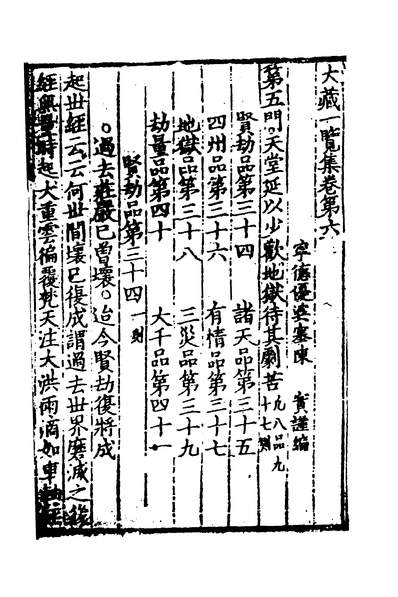 大藏一覽集卷第六
寧德優婆塞陳　實謹編
第五門。天堂延以少歡地獄待其劇苦凡八品九十七則
賢劫品第三十四　諸天品第三十五
四州品第三十六　有情品第三十七
地獄品第三十八　三災品第三十九
劫量品第四十　大千品第四十一
賢劫品第三十四一則
。過去莊嚴已曾壞。迨今賢劫復將成
起世經云云何世間壞已復成謂過去世界磨滅之後
經無量時起大重雲徧覆梵天注大洪雨滴如車軸經